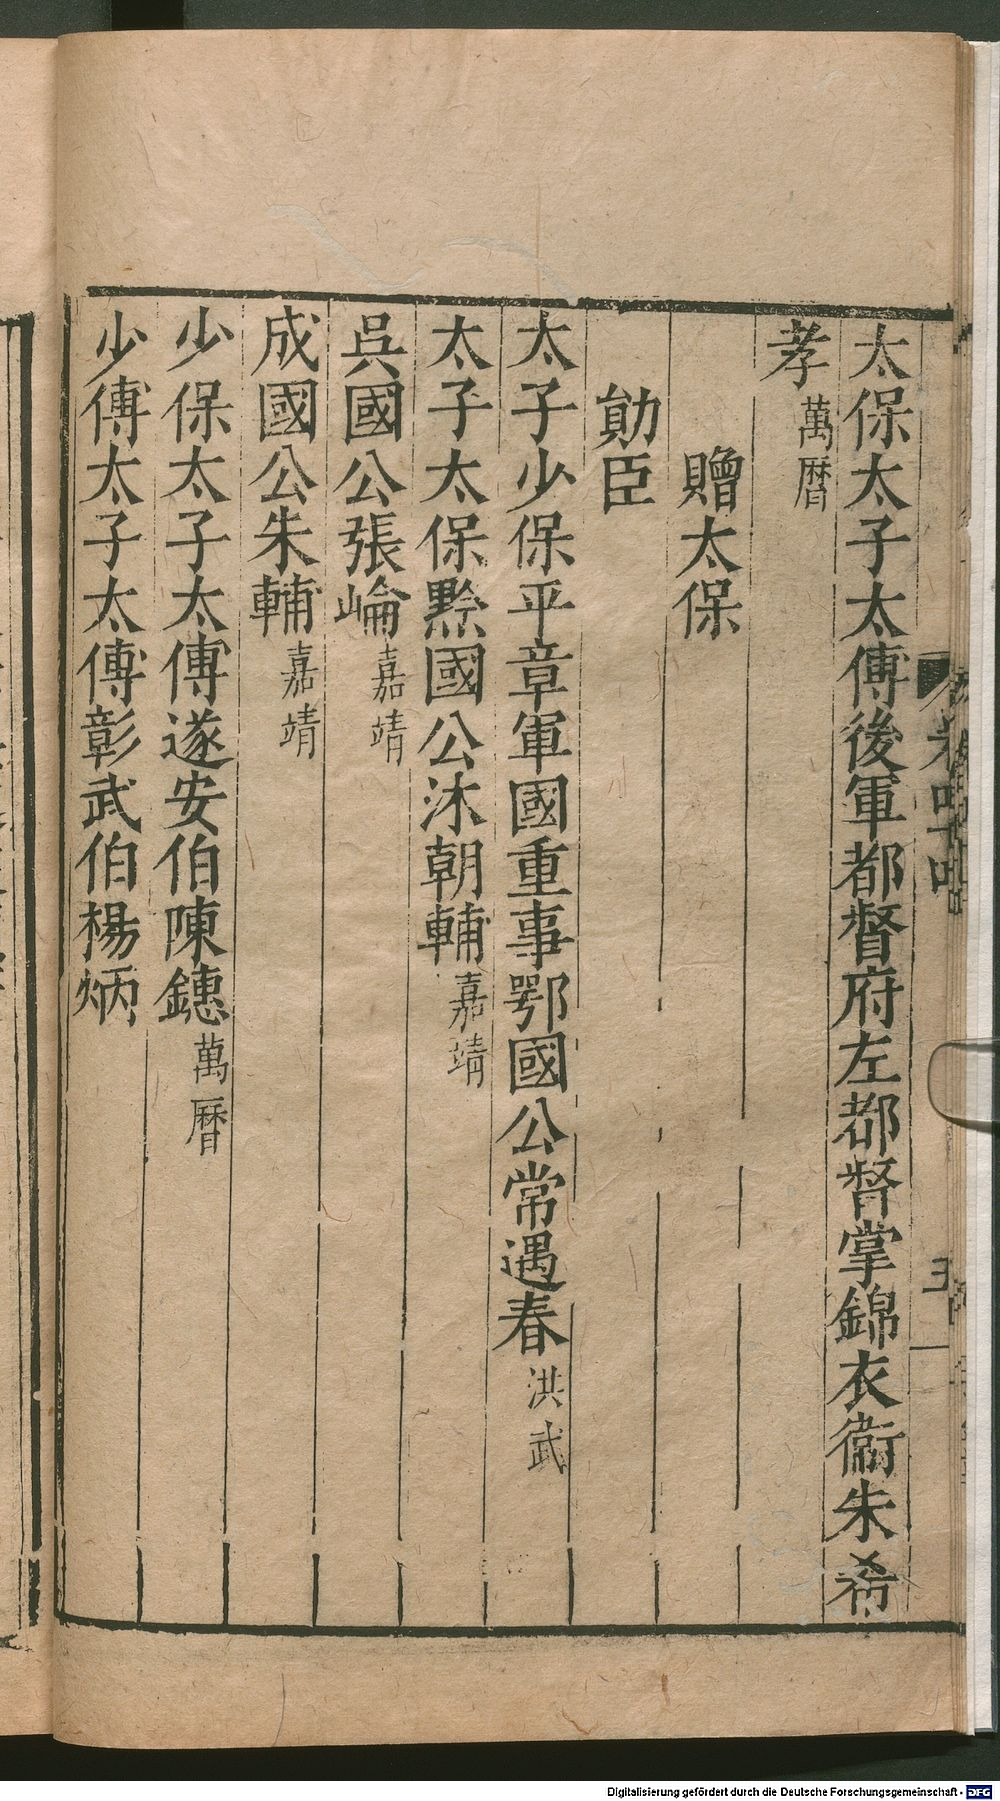 太保太子太傅後軍都督府左都督掌錦衣衞朱希
孝萬曆
贈太保
勛臣
太子少保平章軍國重事鄂國公常遇春洪武
太子太保黔國公沐朝輔嘉靖
吳國公張崘嘉靖
成國公朱輔嘉靖
少保太子太傅遂安伯陳鏸萬曆
少傅太子太傅彰武伯楊炳
Digitalisierung gefördert durch die Deutsche Forschungsgemeinschaft - DFG